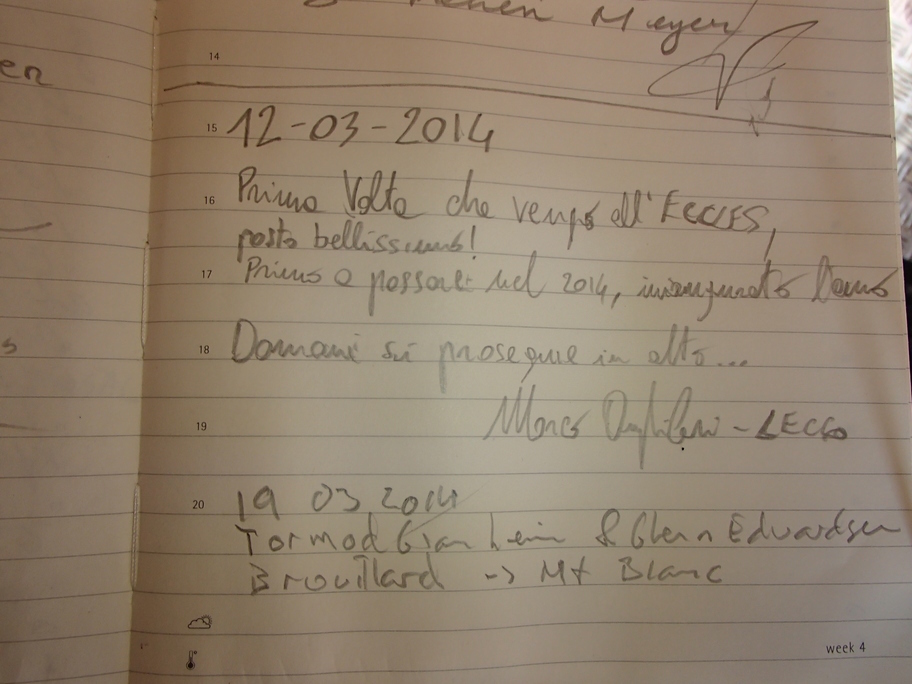 en
Meyer
14
15 12-03-2014
16 Prima Volta che vengo all'ECCLES,
posto bellissimo!
17 Primo a passare nel 2014, inaugurato
18 Domani si prosegue in alto...
19 Marco - LECCO
20 19 03 2014
Tormod Granheim & Glenn Edvardsen
Brouillard -> Mt Blanc
s
week 4